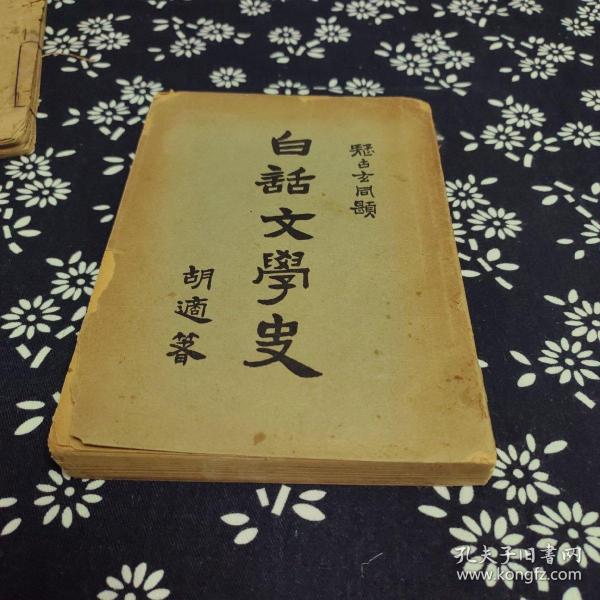 疑古玄同題
白話文學史
胡適篹
孔夫子旧书网
www.kongfz.com